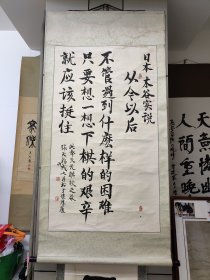 日本木谷实说
从今以后
不管遇到什麽样的困难
只要想一想下棋的艰辛
就应该挺住
天意
人间重晚